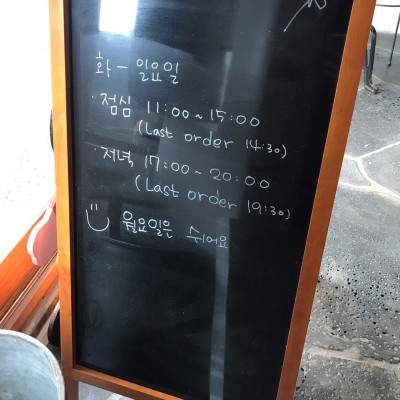 화 - 일요일
· 점심 11:00 ~ 15:00
(Last order 14:30)
· 저녁 17:00 ~ 20:00
(Last order 19:30)
월요일은 쉬어요